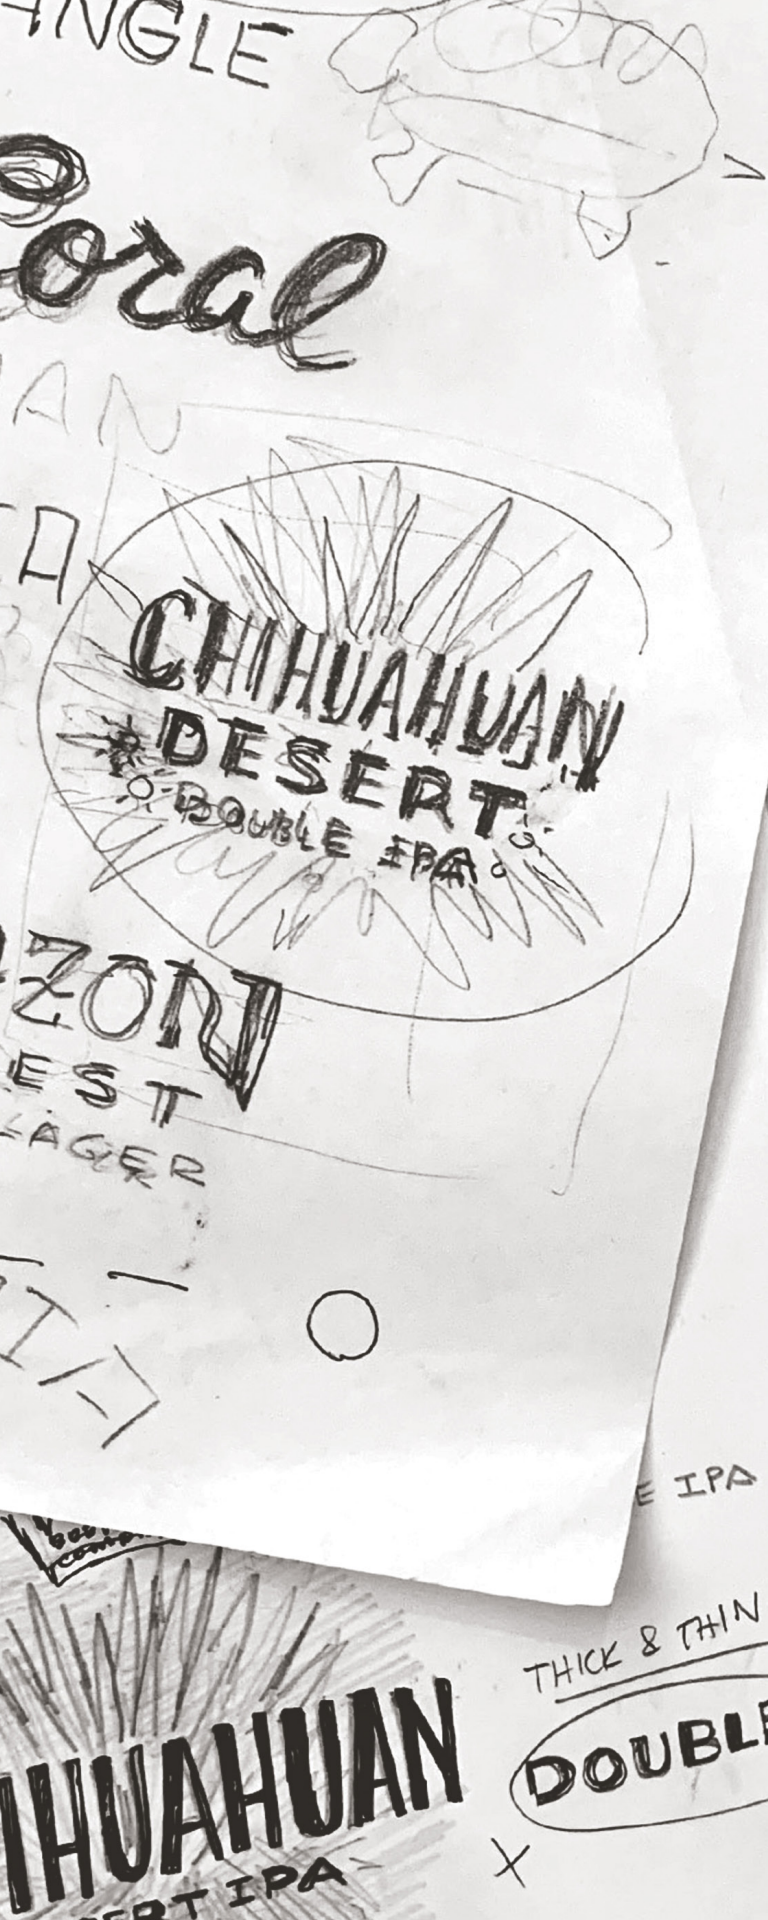 ANGLE
oral
AN
CHIHUAHUAN
DESERT
DOUBLE IPA
ZON
EST
LAGER
IA
E IPA
THICK & THIN
DOUBLE
IHUAHUAN
ERT IPA